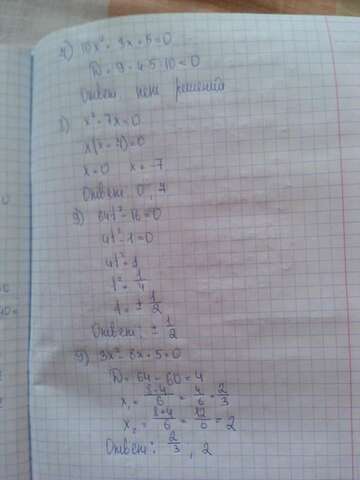 10x² + 3x + 5 = 0
D = 9 - 4·5·10 < 0
Ответ: нет решений
x² - 7x = 0
x(x - 7) = 0
x = 0 x = -7
Ответ: 0, 7
64t² - 16 = 0
4t² - 1 = 0
4t² = 1
t² = 1/4
t = ± 1/2
Ответ: ± 1/2
3x² - 8x + 5 = 0
D = 64 - 60 = 4
x₁ = (8-4)/6 = 4/6 = 2/3
x₂ = (8+4)/6 = 12/6 = 2
Ответ: 2/3, 2